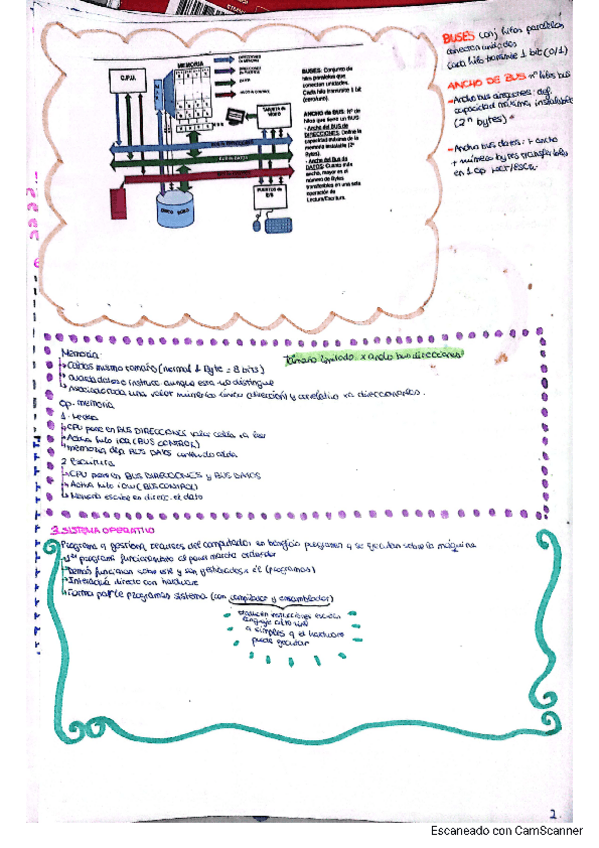 BUSES conj hilos paralelos
conectan unidades
Cada hilo transmite 1 bit (0/1)
ANCHO DE BUS nº hilos bus
Ancho bus direcciones: def.
capacidad máxima, instalable
(2ⁿ bytes)
Ancho bus datos: + ancho
+ número bytes transferibles
en 1 op lect/escr.
MEMORIA
C.P.U.
TARJETA DE
VÍDEO
BUS DE DATOS
DISCO DURO
PUERTOS DE
E/S
BUSES: Conjunto de
hilos paralelos que
conectan unidades.
Cada hilo transmite 1 bit
(cero/uno).
ANCHO de BUS: Nº de
hilos que tiene un BUS:
- Ancho del BUS de
DIRECCIONES: Define la
capacidad máxima de la
memoria instalable (2ⁿ
Bytes).
- Ancho del Bus de
DATOS: Cuanto más
ancho, mayor es el
número de Bytes
transferibles en una sola
operación de
Lectura/Escritura.
Memoria:
Celdas mismo tamaño (normal 1 Byte = 8 bits)
Tamaño limitado x ancho bus direcciones
Guarda datos e instrucc aunque esta no distingue
Asociado cada una valor numérico único (dirección) y correlativo
op. memoria
1. Lectura
CPU pone en BUS DIRECCIONES valor celda a leer
Activa hilo (BUS CONTROL)
memoria deja BUS DATOS contenido celda
2 Escritura
CPU pone en BUS DIRECCIONES y BUS DATOS
Activa hilo (BUS CONTROL)
Memoria escribe en direcc. el dato
2. SISTEMA OPERATIVO
Programa q gestiona recursos del computador en beneficio programas q se ejecutan sobre la máquina
1er programa funcionando al poner marcha ordenador
Demás funcionan sobre este y son gestionados x él (programas)
Interactúa directo con hardware
Forma parte programas sistema (con compilador y ensamblador)
traducen instrucciones escritas
lenguaje alto nivel
a simples q el hardware
puede ejecutar
2.
Escaneado con CamScanner